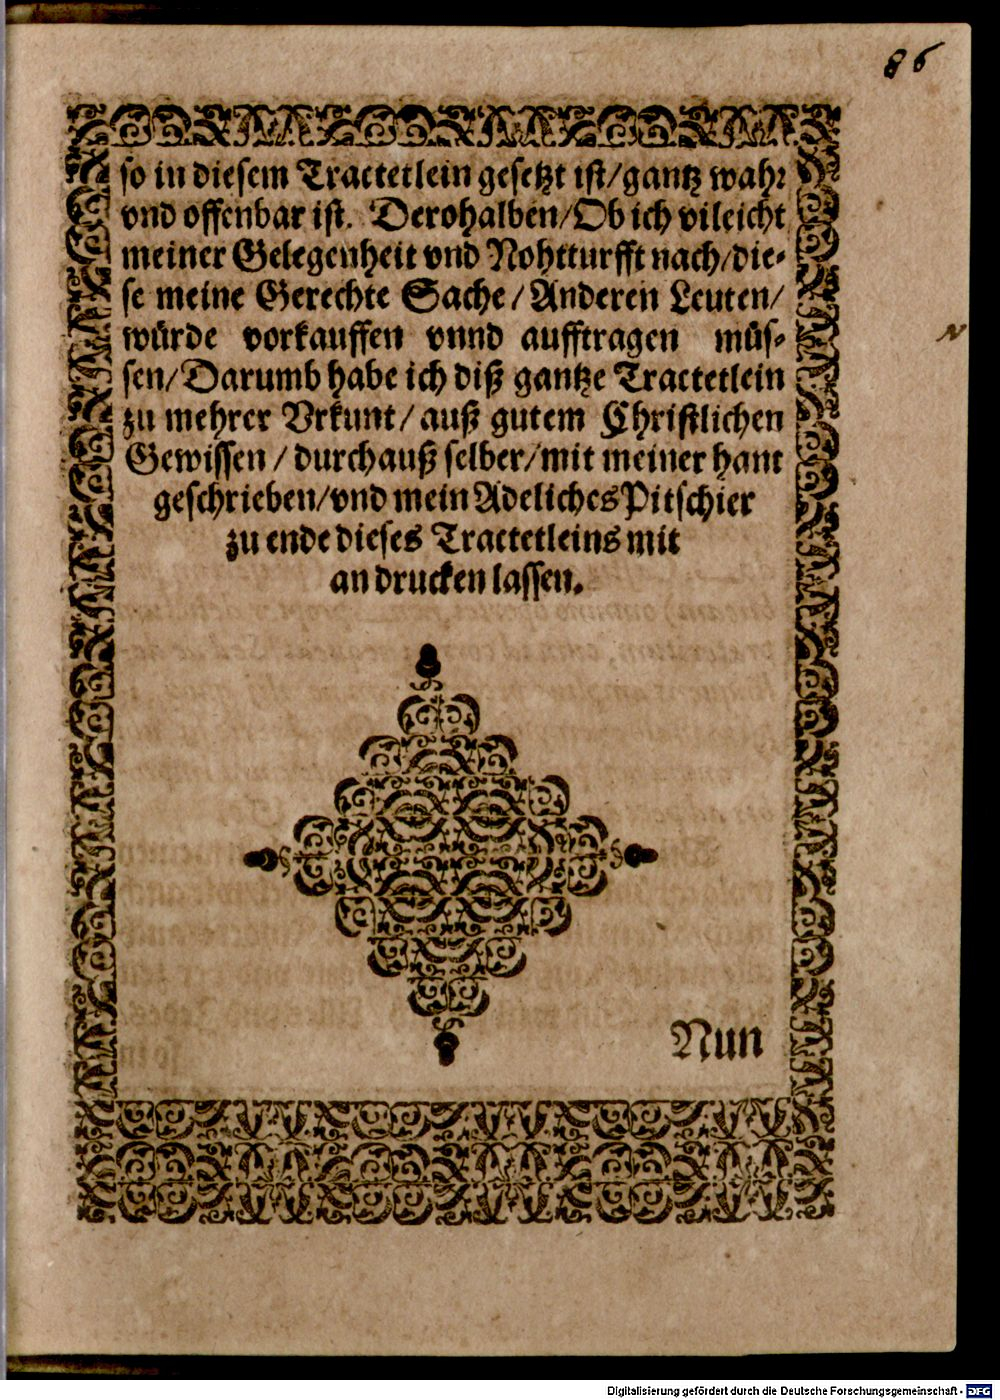 86
so in diesem Tractetlein gesetzt ist/gantz wahr
vnd offenbar ist. Derohalben/Ob ich vileicht
meiner Gelegenheit vnd Nohtturfft nach/die-
se meine Gerechte Sache/Anderen Leuten/
würde vorkauffen vnnd aufftragen müs-
sen/Darumb habe ich diß gantze Tractetlein
zu mehrer Vrkunt/auß gutem Christlichen
Gewissen/durchauß selber/mit meiner hant
geschrieben/vnd mein Adeliches Pitschier
zu ende dieses Tractetleins mit
an drucken lassen.
Nun
Digitalisierung gefördert durch die Deutsche Forschungsgemeinschaft - DFG